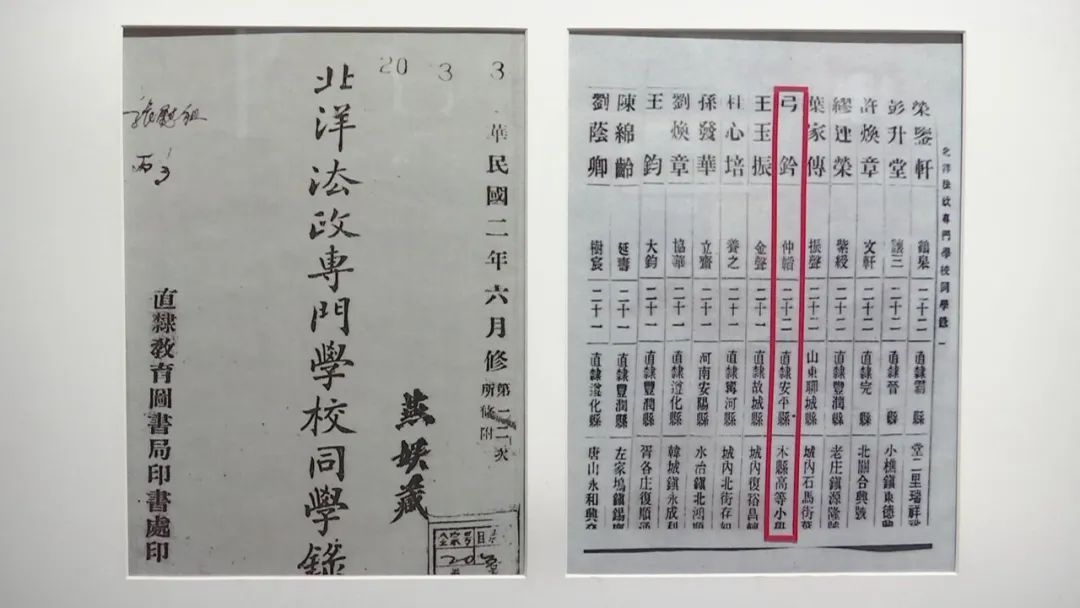 20 3 3
華民國二年六月修
第二次
所儲附
燕娱藏
北洋法政專門學校同學錄
直隸教育圖書局印書處印
北洋法政專門學校同學錄 一
榮鑒軒 鶴皋 二十二 直隸霸縣 堂二里瑞祥
彭升堂 讓三 二十二 直隸晉縣 小樵鎮東德
許煥章 文軒 二十二 直隸完縣 北關合興號
繆連榮 紫綬 二十二 直隸豐潤縣 老庄鎮源隆號
葉家傳 振聲 二十二 山東聊城縣 城內石馬街葉
弓鈐 仲韜 二十二 直隸安平縣 本縣高等小學
王玉振 金聲 二十一 直隸故城縣 城內復裕昌
杜心培 養之 二十一 直隸寗河縣 城內北街存
孫發華 立齋 二十一 河南安陽縣 水冶鎮北鴻
劉煥章 協華 二十一 直隸遵化縣 韓城鎮永成
王鈞 大鈞 二十一 直隸豐潤縣 胥各庄復順
陳綿齡 延壽 二十一 直隸豐潤縣 左家塢鎮錫
劉蔭卿 樹宸 二十一 直隸遵化縣 唐山永和興